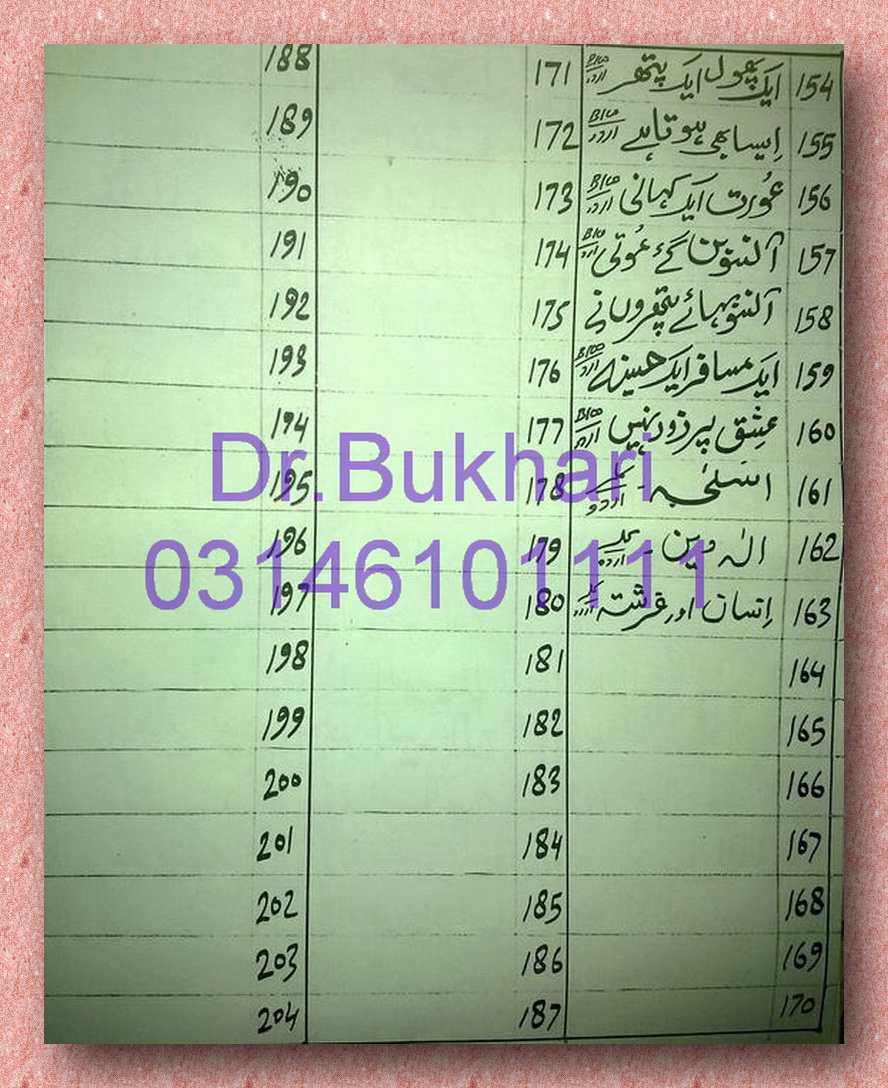 154 ایک پھول ایک پتھر اردو 171 188
155 ایسا بھی ہوتا ہے اردو 172 189
156 عورت ایک کہانی اردو 173 190
157 آنسو بن گئے موتی اردو 174 191
158 آنسو بہائے پتھروں نے 175 192
159 ایک مسافر ایک حسینہ اردو 176 193
160 عشق پر زور نہیں اردو 177 194
161 اردو 178 195
162 الہ دین اردو 179 196
163 انسان اور فرشتہ 180 197
164 181 198
165 182 199
166 183 200
167 184 201
168 185 202
169 186 203
170 187 204
Dr.Bukhari
03146101111